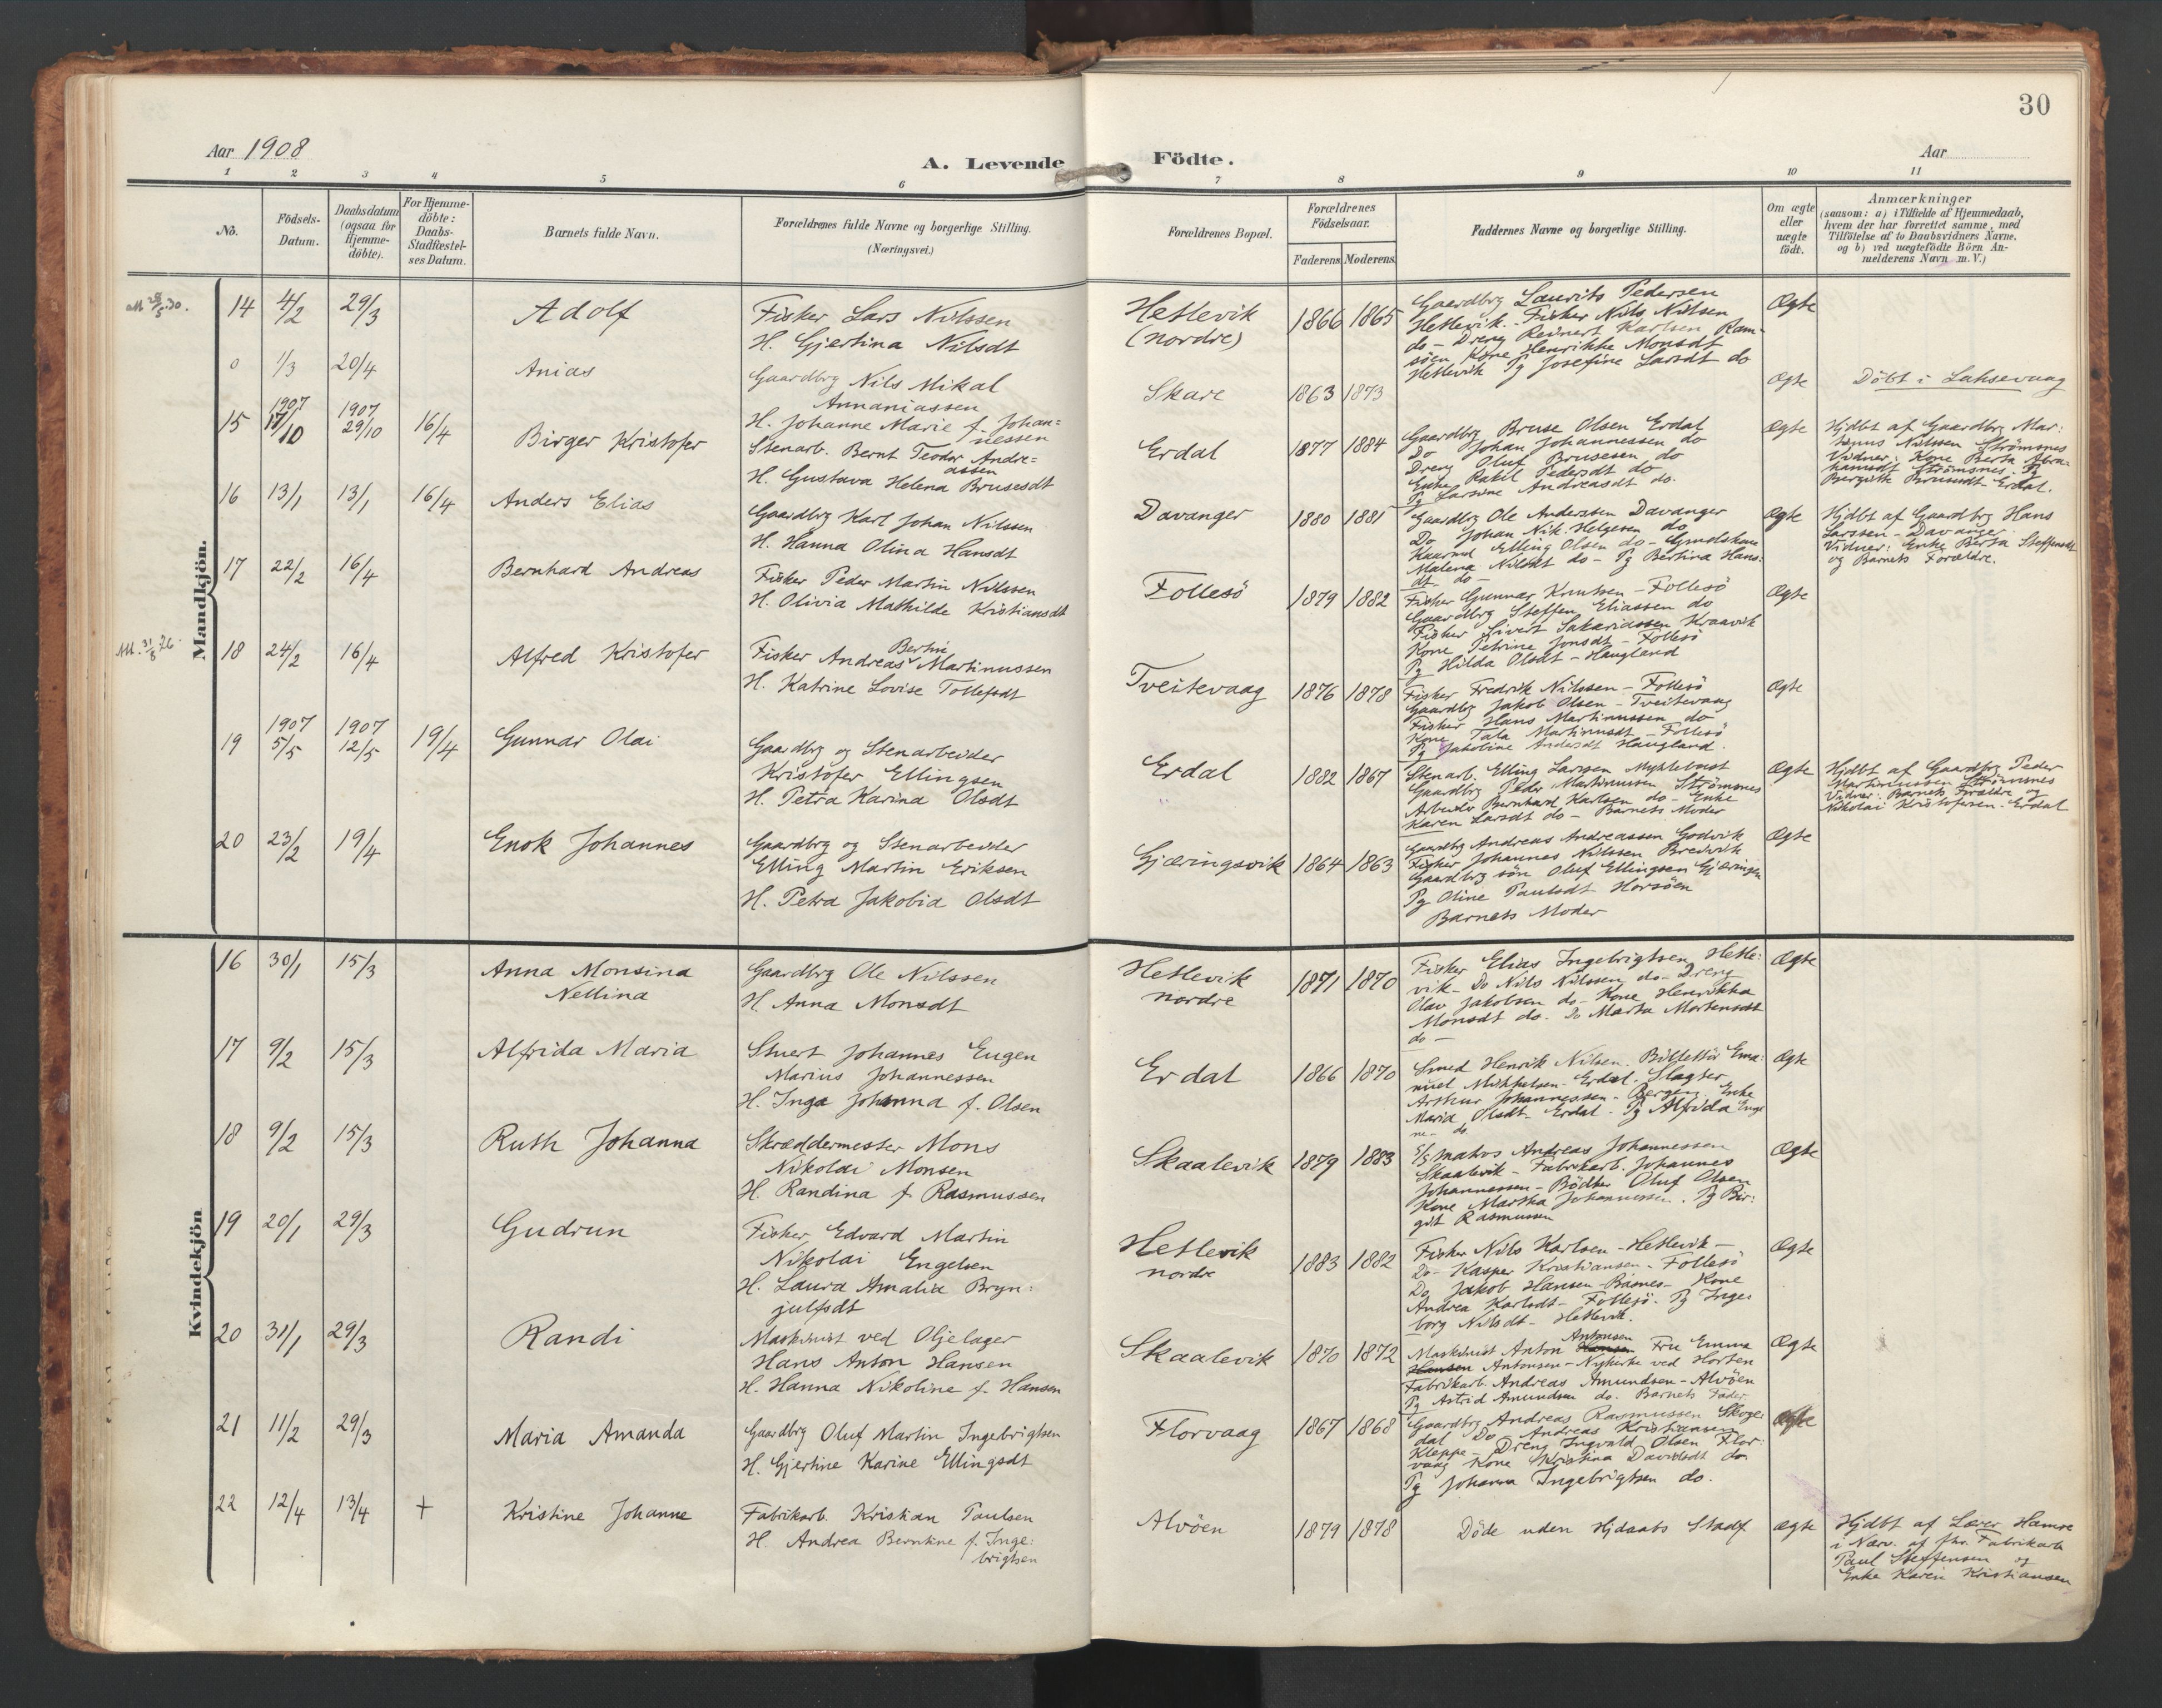 30
Aar 1908
A. Levende Födte.
Aar
1 2 3 4 5 6 7 8 9 10 11
No.
Födsels-Datum.
Daabsdatum (ogsaa for Hjemme-döbte).
For Hjemme-döbte: Daabs-Stadfæstel-ses Datum.
Barnets fulde Navn.
Forældrenes fulde Navne og borgerlige Stilling.
(Næringsvei.)
Forældrenes Bopæl.
Forældrenes Födselsaar.
Faderens Moderens
Faddernes Navne og borgerlige Stilling.
Om ægte eller uægte födt.
Anmærkninger
(saasom: a) i Tilfælde af Hjemmedaab,
hvem der har forrettet samme, med
Tilföielse af to Daabsvidners Navne,
og b) ved uægtefödte Börn An-
melderens Navn m. V.)
Mandkjön.
14 4/2 29/3 Adolf
Fisker Lars Nilssen
H. Gjertina Nilsdt
Hetlevik
(nordre)
1866 1865
Gaardbrg Laurits Pedersen
Hetlevik. - Fisker Nils Nilsen
do - Dreng Reinert Karlsen Ram-
söen Kone Henrikke Monsdt
Hetlevik Pg Josefine Larsdt do
Ægte
0 1/3 20/4 Anias
Gaardbrg Nils Mikal
Annaniassen
H. Johanne Marie f. Johan=
nessen
Skare
1863 1873
Ægte
Döbt i Laksevaag
15 1907 17/10 1907 29/10 16/4 Birger Kristofer
Stenarb. Bernt Teodor Andre=
assen
H. Gustava Helena Brusesdt
Erdal
1877 1884
Gaardbrg Bruse Olsen Erdal
Do Johan Johannessen do
Dreng Oluf Brusesen do
Enke Rakel Pedersdt do
Pg Larsine Andreasdt do.
Ægte
Hjdbt af Gaardbrg Mar:
tinus Nilssen Strömsnes
Vidner: Kone Berta Abra-
hamsdt Strömsnes. Pg
Bergitte Brusesdt - Erdal.
16 13/1 13/1 16/4 Anders Elias
Gaardbrg Karl Johan Nilssen
H. Hanna Olina Hansdt
Davanger
1880 1881
Gaardbrg Ole Anderssen Davanger
Do Johan Nik. Helgesen do
Kaarmd Elling Olsen do - Gmdskone
Malena Nilsdt do - Pg Bertina Hans:
dt do -
Ægte
Hjdbt af Gaardbrg Hans
Larssen - Davanger
Vidner: Enke Berta Steffensdt
og Barnets Forældre.
17 22/2 16/4 Bernhard Andreas
Fisker Peder Martin Nilssen
H. Olivia Mathilde Kristiansdt
Follesö
1879 1882
Fisker Gunnar Knutsen - Follesö
Gaardbrg Steffen Eliassen do
Fisker Sivert Sakariassen Kraavik
Kone Petrine Jonsdt - Follesö
Pg Hilda Olsdt - Haugland
Ægte
18 24/2 16/4 Alfred Kristofer
Bertin
Fisker Andreas Martinussen
H. Katrine Lovise Tollefsdt
Tveitevaag
1876 1878
Fisker Fredrik Nilssen - Follesö
Gaardbrg Jakob Olsen - Tveitevaag
Fisker Hans Martinussen do
Kone Tala Martinusdt - Follesö
Pg Jakoline Andersdt Haugland.
Ægte
19 1907 5/5 1907 12/5 19/4 Gunnar Olai
Gaardbrg og Stenarbeider
Kristofer Ellingsen
H. Petra Karina Olsdt
Erdal
1882 1867
Stenarb. Elling Larssen Myklebust
Gaardbrg Peder Martinussen Strömsnes
Arbeider Bernhard Karlsen do - Enke
Karen Larsdt do - Barnets Moder
Ægte
Hjdbt af Gaardbrg Peder
Martinussen Strömsnes
Vidner: Barnets Forældre og
Nikolai Kristofersen - Erdal
20 23/2 19/4 Enok Johannes
Gaardbrg og Stenarbeider
Elling Martin Eriksen
H. Petra Jakobia Olsdt
Gjæringsvik
1864 1863
Gaardbrg Andreas Andreassen Godvik
Fisker Johannes Nilssen Breivik
Gaardbrg sön Oluf Ellingsen Gjæringen
Pg Oline Paulsdt Horsöen
Barnets Moder
Ægte
Kvindekjön
16 30/1 15/3 Anna Monsina
Nellina
Gaardbrg Ole Nilssen
H. Anna Monsdt
Hetlevik
nordre
1871 1870
Fisker Elias Ingebrigtsen Hetle:
vik - Do Nils Nilssen do - Dreng
Olav Jakobsen do - Kone Henrikka
Monsdt do - Do Marta Mortensdt
do -
Ægte
17 9/2 15/3 Alfrida Maria
Stuert Johannes Eugen
Marius Johannessen
H. Inga Johanna f. Olsen
Erdal
1866 1870
Smed Henrik Nilsen. Billettör Ema:
nuel Mikkelsen - Erdal. Slagter
Arthur Johannessen - Bergen. Enke
Maria Olsdt - Erdal. Pg Alfrida Euge
ne - do
Ægte
18 9/2 15/3 Ruth Johanna
Skræddermester Mons
Nikolai Monsen
H. Randina f. Rasmussen
Skaalevik
1879 1883
matros Andreas Johannessen
Skaalevik - Fabrikarb. Johannes
Johannessen - Bödker Oluf Olsen
Kone Martha Johannessen. Pg Bir:
git Rasmussen
Ægte
19 20/1 29/3 Gudrun
Fisker Edvard Martin
Nikolai Engelsen
H. Laura Amalia Bryn:
julfsdt
Hetlevik
nordre
1883 1882
Fisker Nils Karlsen - Hetlevik -
Do - Kasper Kristiansen - Follesö
Do Jakob Hansen - - Kone
Andrea Karlsdt - Follesö. Pg Inge
borg Nilsdt - Hetlevik.
Ægte
20 31/1 29/3 Randi
Maskinist ved Oljelager
Hans Anton Hansen
H. Hanna Nikoline f. Hansen
Skaalevik
1870 1872
Antonsen
Maskinist Anton Hansen Fru Emma
Hansen Antonsen - Nykirke ved Horten
Fabrikarb. Andreas Amundsen - Alvöen
Pg Astrid Amundsen do. Barnets Fader
Ægte
21 11/2 29/3 Maria Amanda
Gaardbrg Oluf Martin Ingebrigtsen
H. Gjertine Karine Ellingsdt
Florvaag
1867 1868
Gaardbrg Andreas Rasmussen Skoge
dal Do Andreas Kristiansen
Kleppe - Dreng Ingvald Olsen Flor:
vaag Kone Kristina Davidsdt do
Pg Johanna Ingebrigtsen do.
Ægte
22 12/4 13/4 + Kristine Johanne
Fabrikarb. Kristian Paulsen
H. Andrea Berntine f. Inge:
brigtsen
Alvöen
1879 1878
Döde uden Hjdaabs Stadf
ægte
Hjdbt af Lærer Hamre
i Nærv. af fhv. Fabrikarb
Paul Steffensen og
Enke Karen Kristiansen